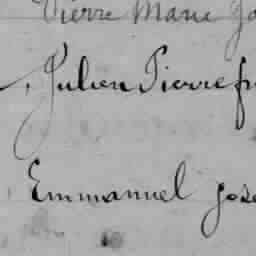 Pierre Marie Jo
Julien Pierre fr
Emmanuel Jose